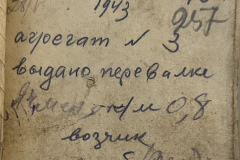 1943
257
агрегат № 3
выдано перевалки
к/м 0,8
возчик